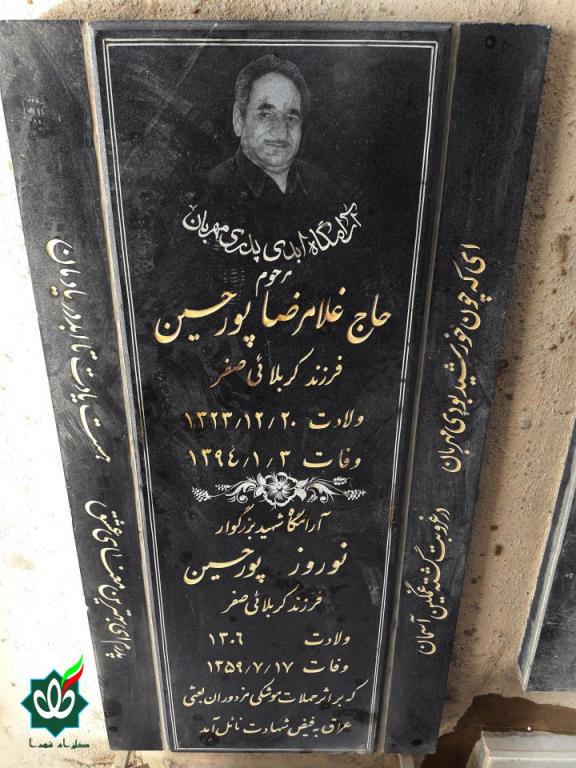 آرامگاه ابدی پدری مهربان
مرحوم
حاج غلامرضا پورحسین
فرزند کربلائی صفر
ولادت ۱۳۲۳/۱۲/۲۰
وفات ۱۳۹٤/۱/۳
آرامگاه شهید بزرگوار
نوروز پورحسین
فرزند کربلائی صفر
ولادت ۱۳۰۶
وفات ۱۳۵۹/۷/۱۷
که بر اثر حملات موشکی مزدوران بعثی
عراق به فیض شهادت نائل آمد
ای که چون خورشید بودی مهربان
در غروبت گشته غمگین آسمان